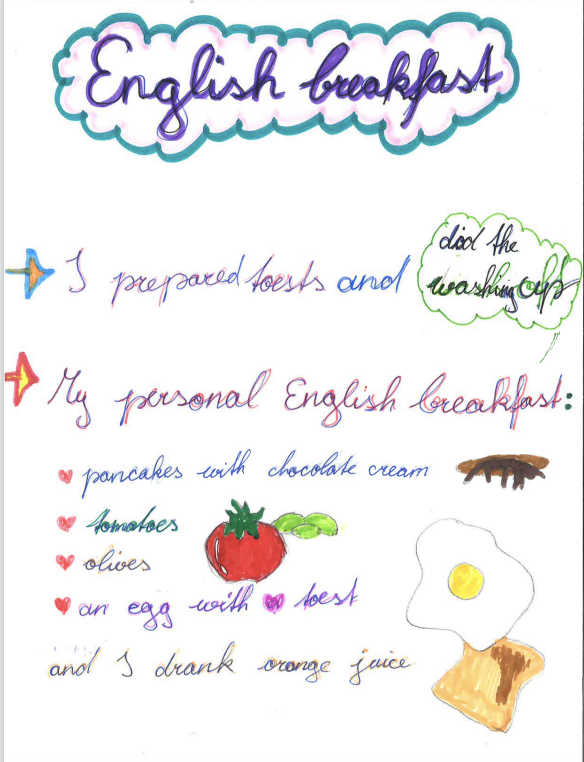 English breakfast
I prepared toests and did the washing up
My personal English breakfast:
pancakes with chocolate cream
tomatoes
olives
an egg with toest
and I drank orange juice